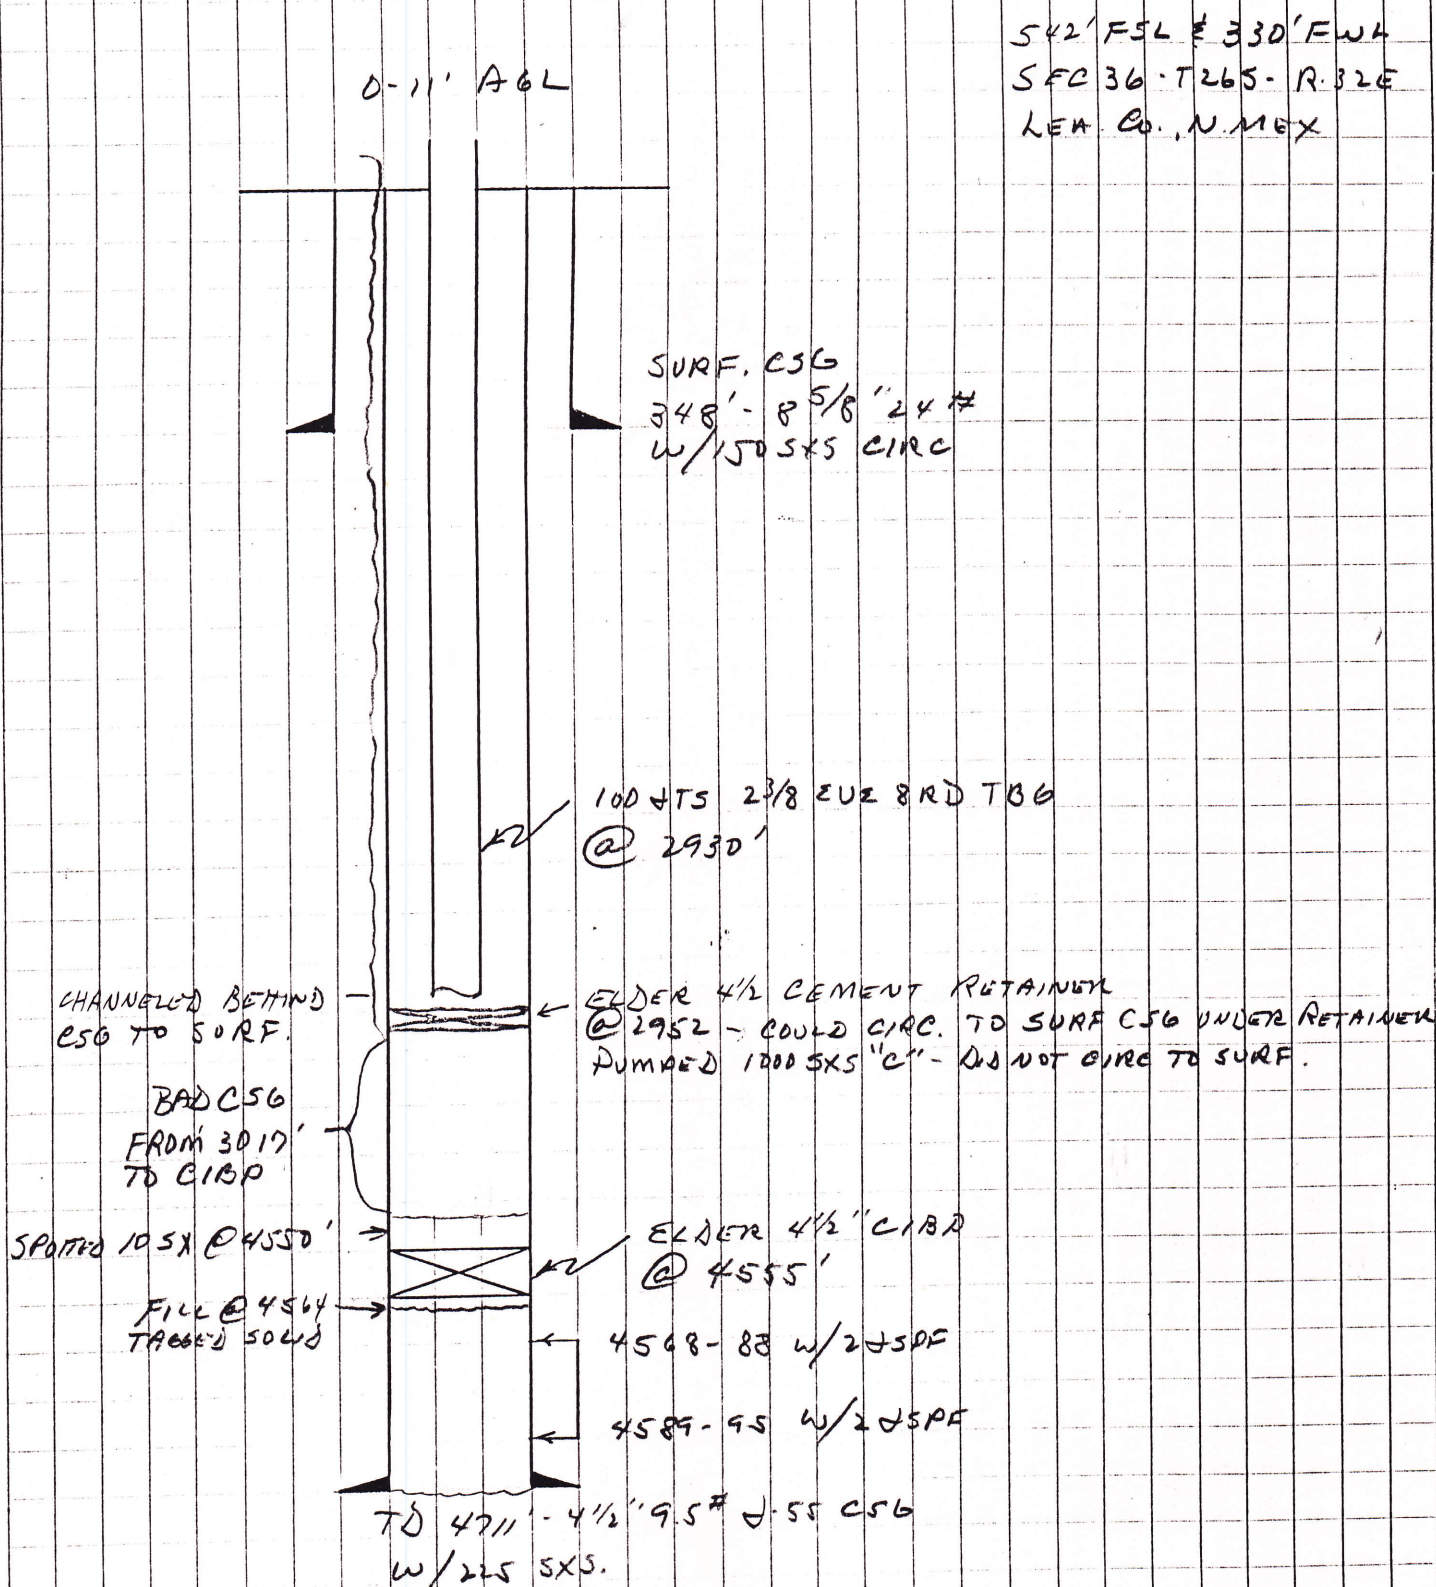 542' FSL & 330' FWL
SEC 36 - T26S - R.32E
LEA CO., N. MEX
0-11' AGL
SURF. CSG
348' - 8 5/8" 24 #
W/150 SXS CIRC
100 JTS 2 3/8 EUE 8RD TBG
@ 2930'
CHANNELED BEHIND
CSG TO SURF.
ELDER 4 1/2 CEMENT RETAINER
@ 2952 - COULD CIRC. TO SURF CSG UNDER RETAINER
PUMPED 1000 SXS "C" - DID NOT CIRC TO SURF.
BAD CSG
FROM 3017'
TO CIBP
SPOTTED 10 SX @ 4550'
ELDER 4 1/2" CIBP
@ 4555'
FILL @ 4564
TAGGED SOLID
4568-88 W/2 JSPF
4589-95 W/2 JSPF
TD 4711' - 4 1/2" 9.5# J-55 CSG
W/225 SXS.